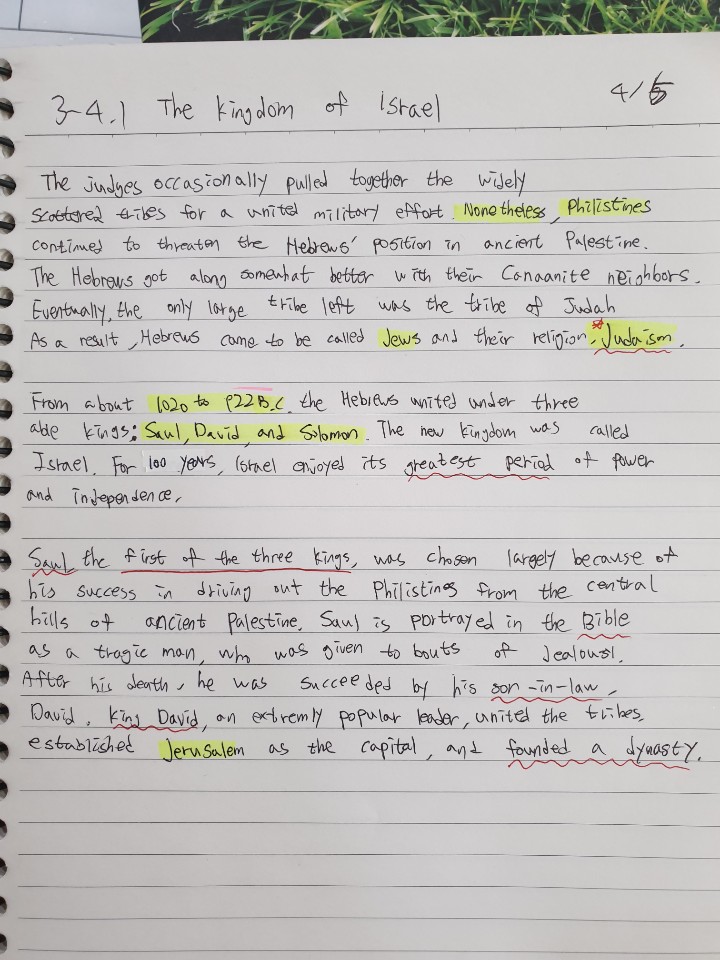 3-4.1 The kingdom of Israel 4/5
The judges occasionally pulled together the widely
scattered tribes for a united military effort. Nonetheless, Philistines
continued to threaten the Hebrews' position in ancient Palestine.
The Hebrews got along somewhat better with their Canaanite neighbors.
Eventually, the only large tribe left was the tribe of Judah
As a result, Hebrews came to be called Jews and their religion, Judaism.
From about 1020 to 922 B.C. the Hebrews united under three
able kings: Saul, David, and Solomon. The new kingdom was called
Israel. For 100 years, Israel enjoyed its greatest period of power
and independence.
Saul, the first of the three kings, was chosen largely because of
his success in driving out the Philistines from the central
hills of ancient Palestine. Saul is portrayed in the Bible
as a tragic man, who was given to bouts of Jealousl.
After his death, he was succeeded by his son-in-law,
David. King David, an extremly popular leader, united the tribes,
established Jerusalem as the capital, and founded a dynasty.